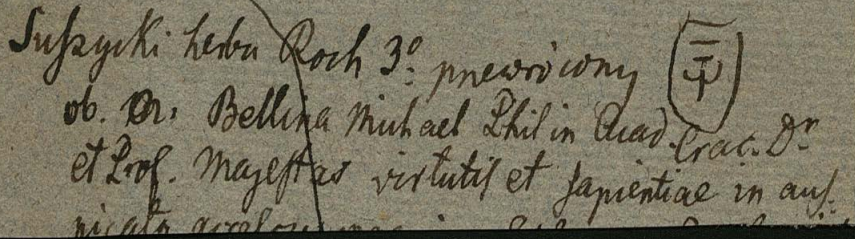 Suszycki herbu Roch 3º pnewrócony
ob. Dr. Bellina Michael Phil in Acad. Crac. Dr
et Prof. Majestas virtutis et sapientiae in aus-
picato